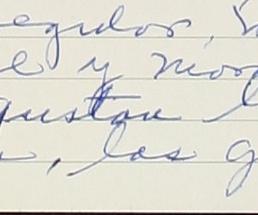 egidos,
e y mos
gustan l
, las g